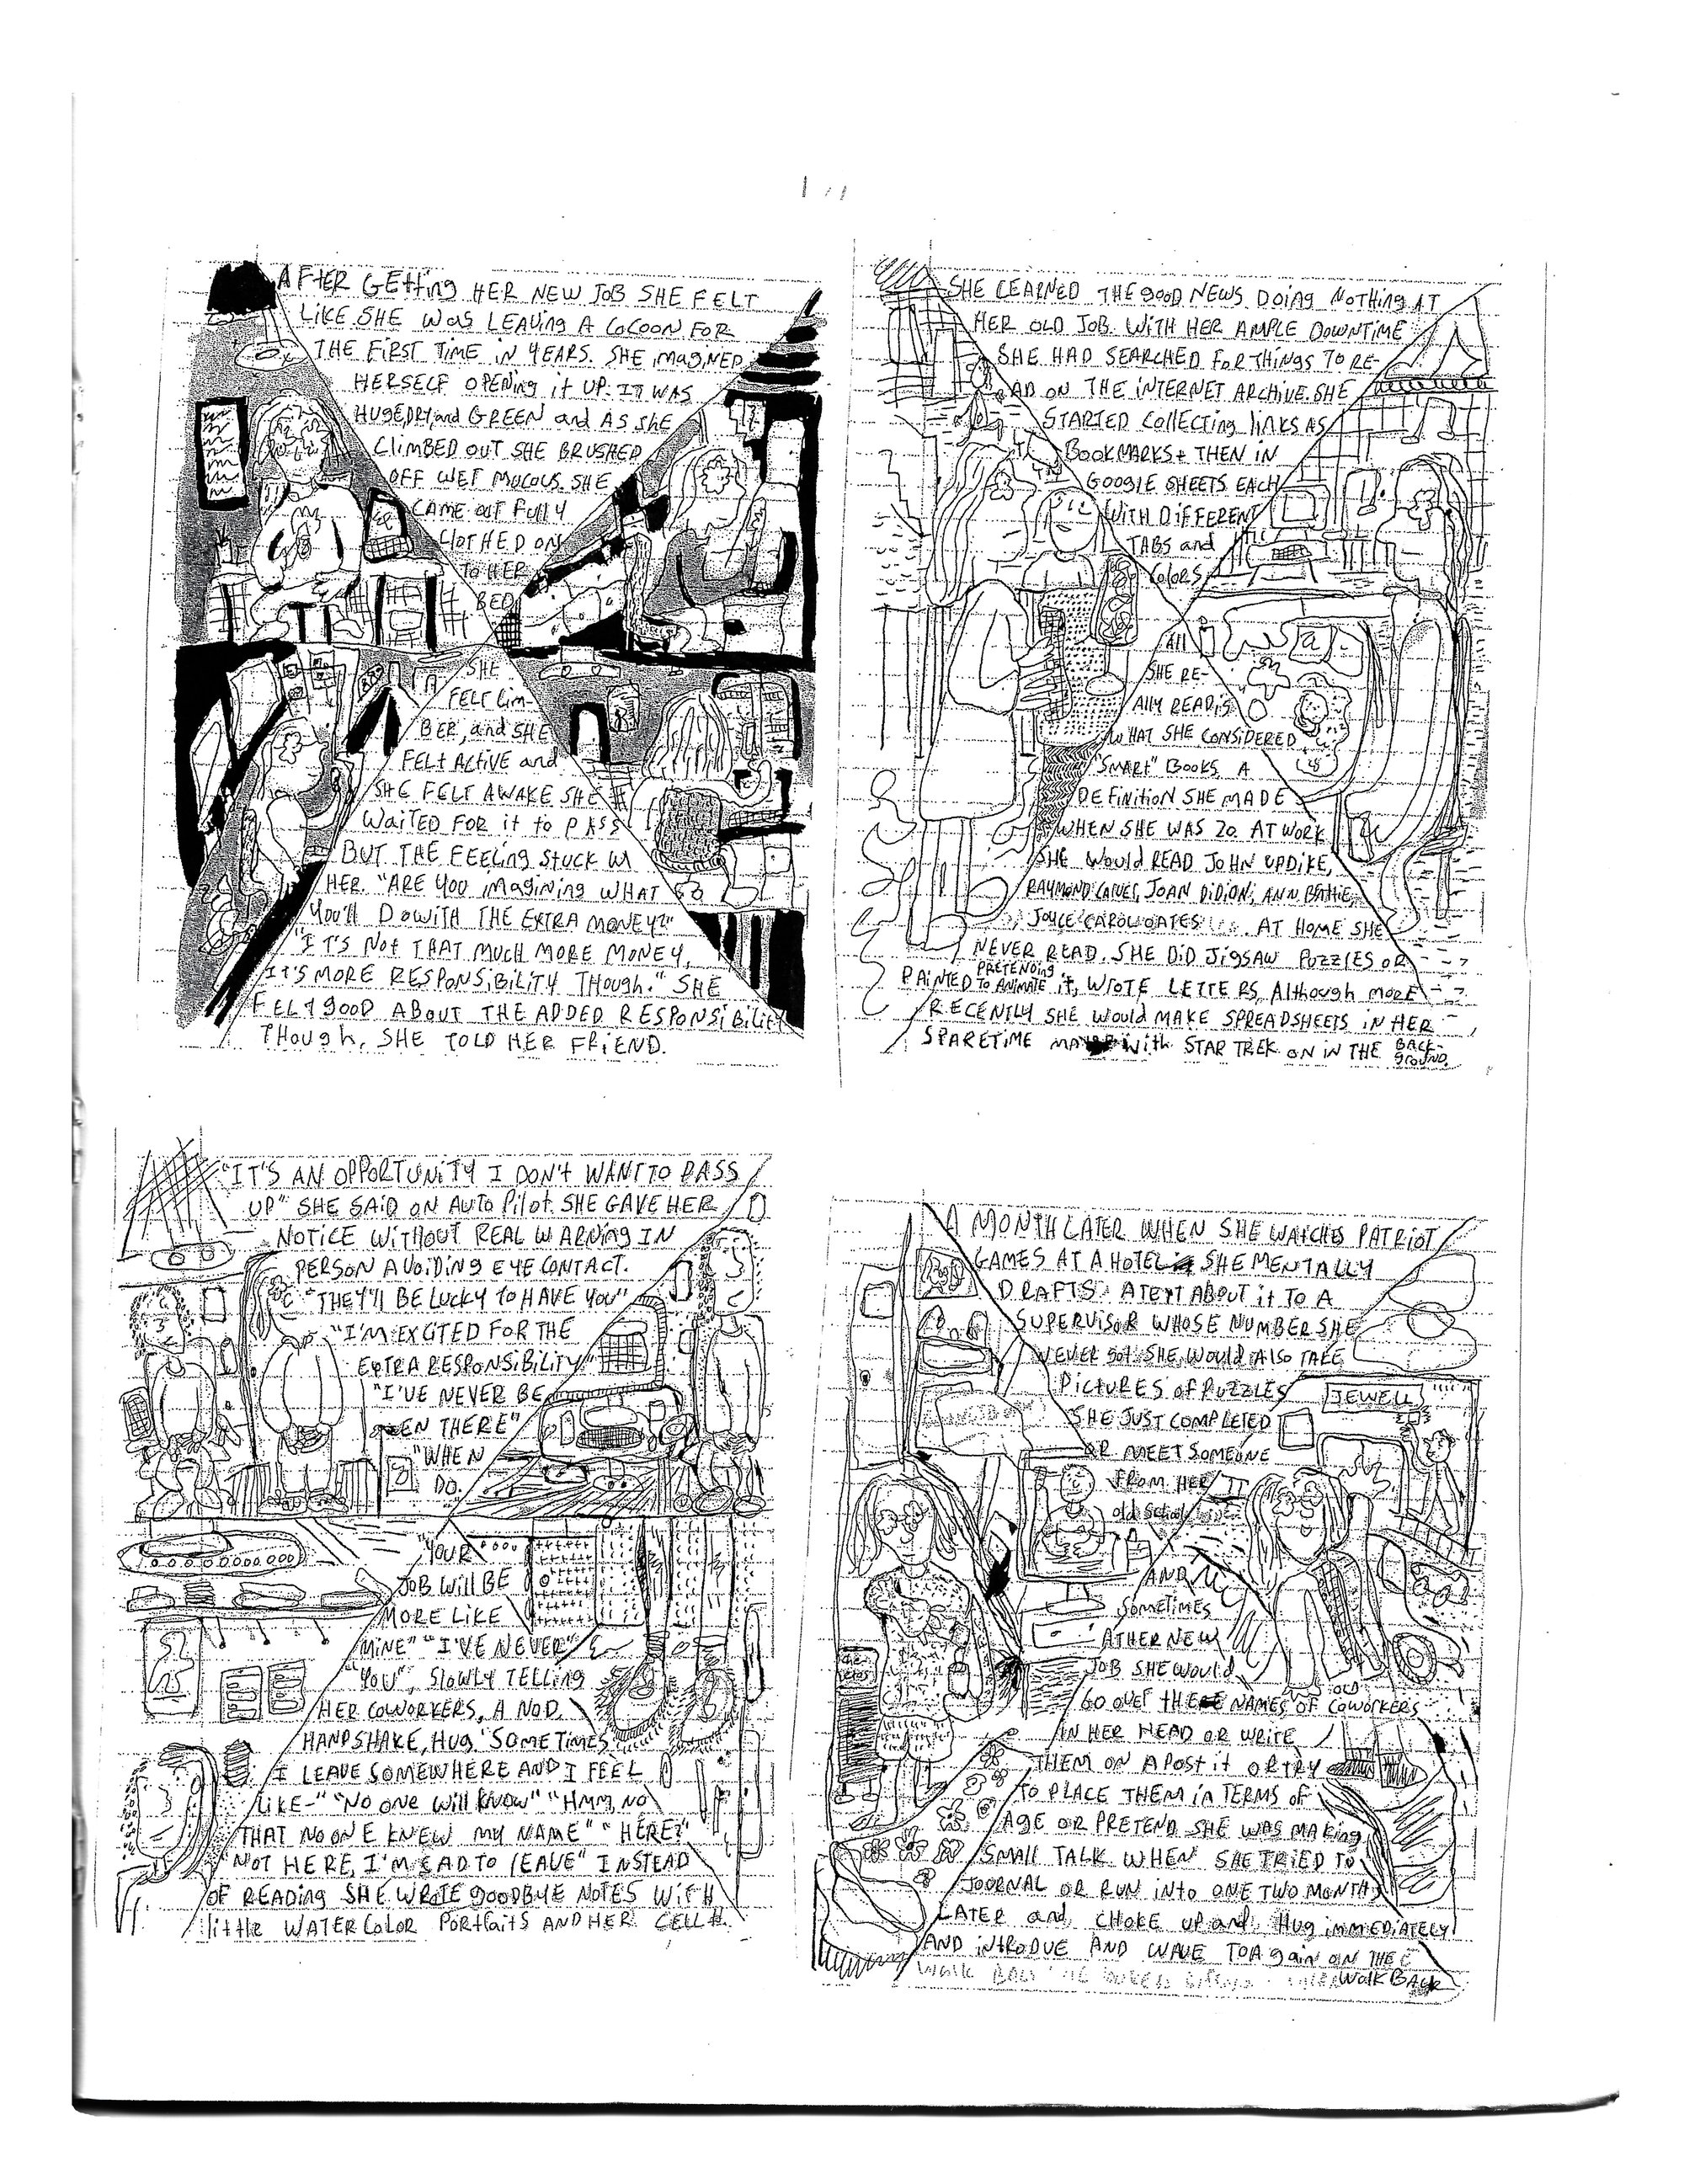 AFTER GEtting HER NEW JOB SHE FELT
LIKE SHE WAS LEAVING A COCOON FOR
THE FIRST TIME IN YEARS. SHE IMAGINED
HERSELF OPENING it UP. IT WAS
HUGE, DRY, and GREEN and AS SHE
CLIMBED OUT SHE BRUSHED
OFF WET MUCOUS. SHE
CAME OUT FULLY
CLOTHED ON
TO HER
BED
SHE
FELT LIM-
BER, and SHE
FELT ACTIVE and
SHE FELT AWAKE SHE
WAITED FOR it to PASS
BUT THE FEELING STUCK W
HER. "ARE YOU IMAGINING WHAT
YOU'll DO WITH THE EXTRA MONEY?"
"IT'S NOT THAT MUCH MORE MONEY,
IT'S MORE RESPONSIBILITY THOUGH." SHE
FELT GOOD ABOUT THE ADDED RESPONSIBILITY
THOUGH, SHE TOLD HER FRIEND.
SHE LEARNED THE GOOD NEWS DOING NOTHING AT
HER OLD JOB. WITH HER AMPLE DOWNTIME
SHE HAD SEARCHED FOR THINGS TO RE-
AD ON THE INTERNET ARCHIVE. SHE
STARTED COLLECTING LINKS AS
BOOKMARKS + THEN IN
GOOGLE SHEETS EACH
WITH DIFFERENT
TABS and
COLORS
All
SHE RE-
ALLY READ IS
WHAT SHE CONSIDERED
"SMART" BOOKS A
DEFINITION SHE MADE
WHEN SHE WAS 20. AT WORK
SHE WOULD READ JOHN UPDIKE,
RAYMOND CARVER, JOAN DIDION, ANN BEATTIE,
JOYCE CAROL OATES. AT HOME SHE
NEVER READ. SHE DID JIGSAW PUZZLES OR
PRETENDING
PAINTED TO ANIMATE it, WROTE LETTERS, Although MORE
RECENTLY SHE WOULD MAKE SPREADSHEETS IN HER
SPARETIME WITH STAR TREK ON IN THE BACK-
GROUND.
"IT'S AN OPPORTUNITY I DON'T WANT TO PASS
UP" SHE SAID ON AUTO PILOT. SHE GAVE HER
NOTICE WITHOUT REAL WARNING IN
PERSON AVOIDING EYE CONTACT.
"THEY'll BE LUCKY TO HAVE YOU"
"I'M EXCITED FOR THE
EXTRA RESPONSIBILITY"
"I'VE NEVER BE
EN THERE"
"WHEN
DO."
"YOUR
JOB WILL BE
MORE LIKE
MINE" "I'VE NEVER"
"YOU", SLOWLY TELLING
HER COWORKERS, A NOD,
HANDSHAKE, HUG. "SOMETIMES
I LEAVE SOMEWHERE AND I FEEL
LIKE-" "NO ONE WILL KNOW" "HMM, NO
THAT NO ONE KNEW MY NAME" "HERE?"
"NOT HERE, I'M SAD TO LEAVE" INSTEAD
OF READING SHE WROTE GOODBYE NOTES WITH
little WATERCOLOR PORTRAITS AND HER CELL #.
A MONTH LATER WHEN SHE WATCHES PATRIOT
GAMES AT A HOTEL SHE MENTALLY
DRAFTS A TEXT ABOUT it TO A
SUPERVISOR WHOSE NUMBER SHE
NEVER GOT. SHE WOULD ALSO TAKE
PICTURES OF PUZZLES
JEWELL
SHE JUST COMPLETED
OR MEET SOMEONE
FROM HER
old School
AND
SOMETIMES
AT HER NEW
JOB SHE WOULD
OLD
GO OVER THE NAMES OF COWORKERS
IN HER HEAD OR WRITE
THEM ON A POST it OR TRY
TO PLACE THEM IN TERMS OF
AGE OR PRETEND SHE WAS MAKING
SMALL TALK WHEN SHE TRIED TO
JOURNAL OR RUN INTO ONE TWO MONTHS
LATER and CHOKE UP and HUG IMMEDIATELY
AND INTRODUE AND WAVE TO AGAIN ON THE
WALK BACK